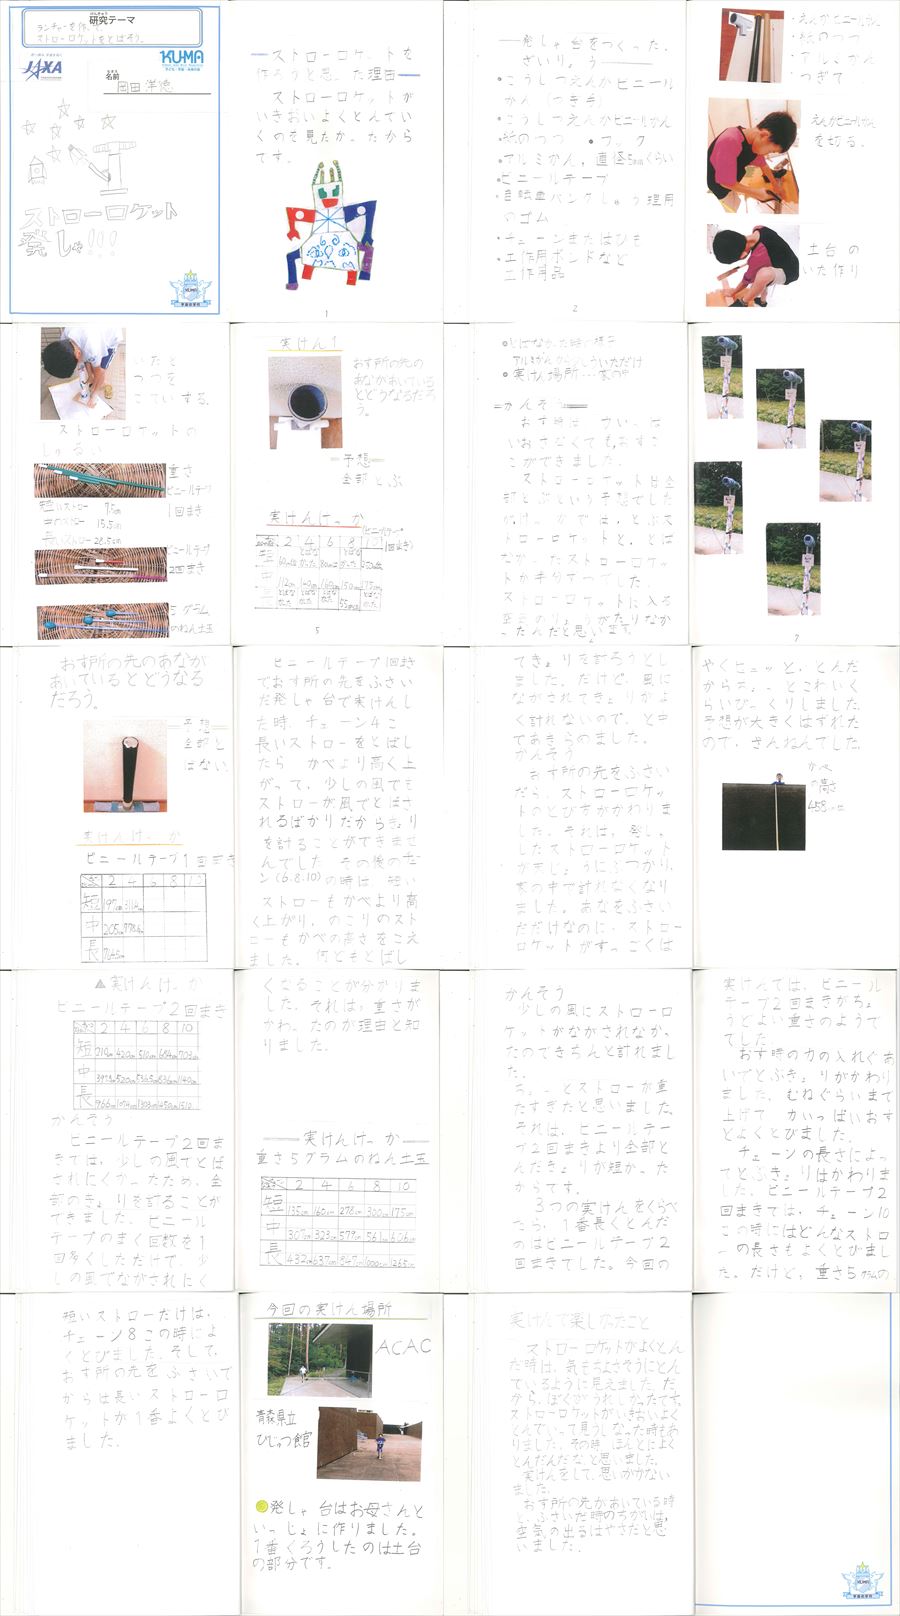 けんきゅう
研究テーマ
ランチャーを作って
ストローロケットをとばそう。
JAXA
KUMA
名前
岡田 洋徳
ストローロケット
発しゃ!!!
ストローロケットを
作ろうと思った理由
ストローロケットが
いきおいよくとんでい
くのを見たかったから
です。
1
発しゃ台をつくった
ざいりょう
・こうしつえんかビニール
かん(つぎ手)
・こうしつえんかビニールかん
・紙のつつ ・フック
・アルミかん,直径5mmくらい
・ビニールテープ
・自転車パンクしゅう理用
のゴム
・チェーンまたはひも
・工作用ボンドなど
工作用品
2
・えんかビニールかん
・紙のつつ
・アルミかん
・つぎて
えんかビニールかん
を切る。
土台の
いた作り
いたと
つつを
こていする。
ストローロケットの
しゅるい
重さ
ビニールテープ
1回まき
短いストロー 7cm
中のストロー 15.5cm
長いストロー 28.5cm
ビニールテープ
2回まき
5グラム
のねん土玉
実けん1
おす所の先の
あながあいている
とどうなるだろ
う。
予想
全部とぶ
実けんけっか
5
・とばなかった時の様子
・実けん場所…家の中
かんそう
ストローロケットは全
部とぶという予想でした
が、けっかでは、とぶス
トローロケットと、とば
なかったストローロケッ
トがありました。
ストローロケットに入る
空気のりょうがたりなか
ったんだと思います。
7
おす所の先のあなが
あいているとどうなる
だろう。
予想
全部と
ばない。
実けんけっか
ビニールテープ1回まき
2 4 6 8 10
短 197cm 311cm
中 205cm 778cm
長 764cm
ビニールテープ1回まき
でおす所の先をふさい
だ発しゃ台で実けんし
た時、チェーン4こ
長いストローをとばし
たら かべより高く上
がって、少しの風でも
ストローが風でとばさ
れるばかりだからきょり
を計ることができませ
んでした。その後のチェー
ン(6.8.10)の時は、短い
ストローもかべより高
く上がり、のこりのスト
ローもかべの高さをこえ
ました。何どもとばし
てきょりを計ろうとし
ました。だけど、風に
ながされてきょりがよ
く計れないので、とち
ゅうであきらめました。
かんそう
おす所の先をふさい
だら、ストローロケッ
トのとび方がかわりま
した。それは、発しゃ
したストローロケット
がまじょうにぶつかり、
家の中で計れなくなり
ました。あなをふさい
だだけなのに、ストロー
ロケットがすっごくは
やくヒュッと、とんだ
からちょっとこわいく
らいびっくりしました。
予想が大きくはずれた
ので、ざんねんでした。
かべ
の高さ
458cm
▲実けんけっか
ビニールテープ2回まき
2 4 6 8 10
短 210cm 420cm 510cm 684cm 703cm
中 397.5cm 520cm 536.5cm 836cm 1140cm
長 966cm 1074cm 1303cm 1450cm 1510
かんそう
ビニールテープ2回ま
きでは、少しの風でとば
されにくかったため、全
部のきょりを計ることが
できました。ビニール
テープのまく回数を1
回多くしただけで、少
しの風でながされにく
くなることが分かりま
した。それは、重さが
かわったのが理由と知
りました。
実けんけっか
重さ5グラムのねん土玉
2 4 6 8 10
短 135cm 160cm 278cm 300cm 175cm
中 307cm 323cm 577cm 561cm 606cm
長 432cm 637cm 847cm 1000cm 1265cm
かんそう
少しの風にストローロ
ケットがながされなか
ったのできちんと計れまし
た。
ちょっとストローが重
たすぎたと思いました。
それは、ビニールテー
プ2回まきより全部と
んだきょりが短かった
からです。
3つの実けんをくらべ
たら、1番長くとんだ
のはビニールテープ2
回まきでした。今回の
実けんでは、ビニール
テープ2回まきがちょ
うどよい重さのようで
した。
おす時の力の入れぐあ
いでとぶきょりがかわり
ました。むねぐらいまで
上げて 力いっぱいおす
とよくとびました。
チェーンの長さによっ
てとぶきょりはかわりま
した。ビニールテープ2
回まきでは、チェーン10
この時にはどんなストロ
ーの長さもよくとびまし
た。だけど、重さ5グラムの
短いストローだけは、
チェーン8この時によ
くとびました。そして、
おす所の先をふさいで
からは長いストローロ
ケットが1番よくとび
ました。
今回の実けん場所
ACAC
青森県立
びじゅつ館
発しゃ台はお母さんと
いっしょに作りました。
1番くろうしたのは土台
の部分です。
実けんで楽しかったこと
ストローロケットがよくとん
だ時は、気もちよさそうにとん
でいるように見えました。だ
から、ぼくもうれしかったです。
ストローロケットがいきおいよく
とんでいって見うしなった時もあ
りました。その時、ほんとによく
とんだんだな、と思いました。
おす所の先があいている時
と、ふさいだ時のちがいは、
空気の出るはやさだと思
いました。
KUMA